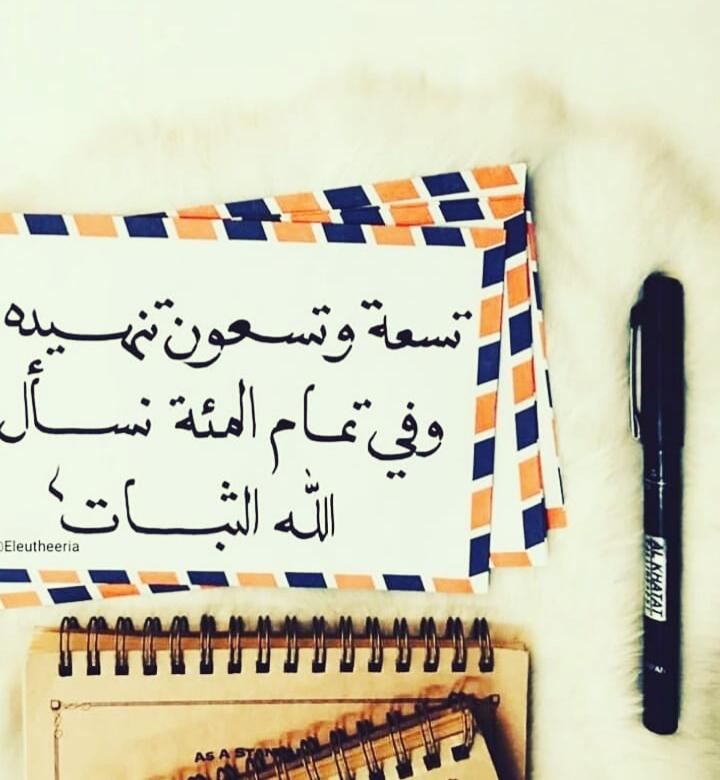 تسعة وتسعون تنهيده
وفي تمام المئة نسأل
الله الثبات
©Eleutheeria
AL KHATAT
AS A STAN